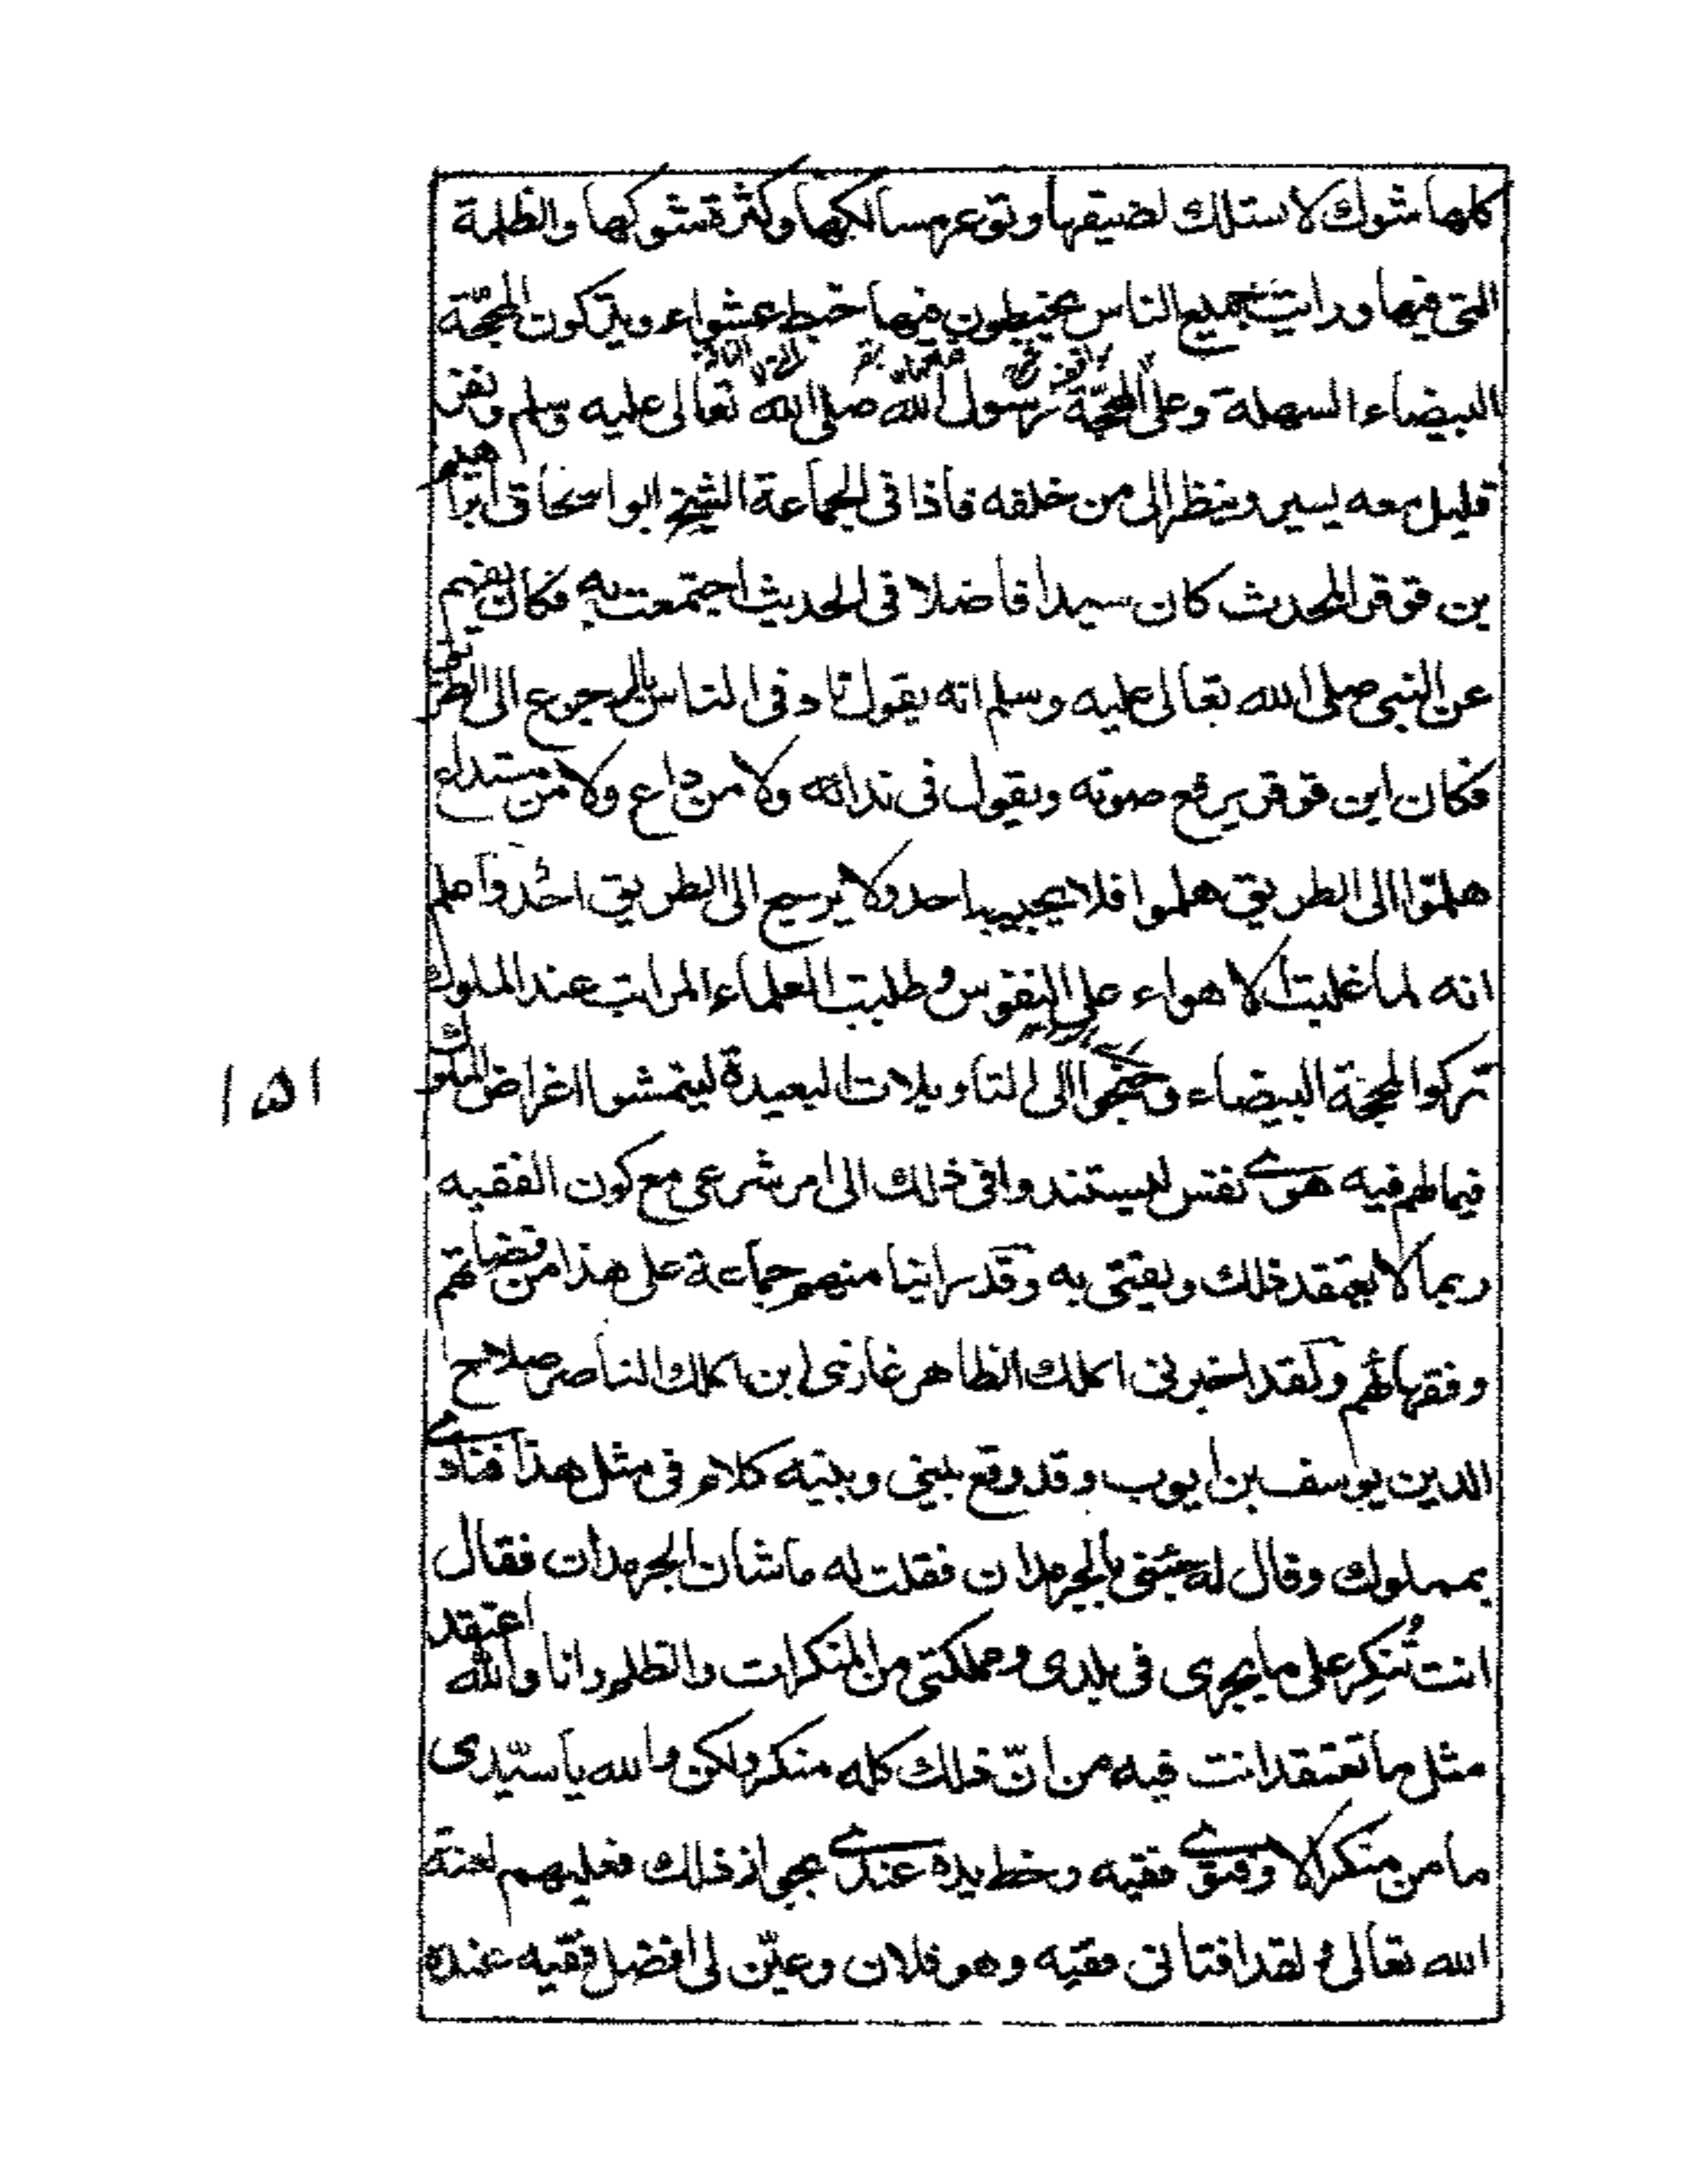 كلها شوك لا ستلك لضيقها وتوعر مسالكها وكثرة شوكها والظلمة
التى فيها ورايت جميع الناس يخبطون فيها خبط عشواء ويتركون المحجّة
البيضاء السهلة وعلى المحجّة رسول الله صلى الله تعالى عليه وسلم ونفر
قليل معه يسير وينظر الى من خلفه فاذا فى الجماعة الشيخ ابو اسحاق ابراهيم
بن قوقر المحدث كان سيدا فاضلا فى الحديث اجتمعت به فكان يفهم
عن النبى صلى الله تعالى عليه وسلم انه يقول ناد فى الناس بالرجوع الى الطريق
فكان ابن قوقر يرفع صوته ويقول فى ندائه ولا من داع ولا من مستداع
هلمّوا الى الطريق هلموا فلا يجيبه احد ولا يرجع الى الطريق احد واعلم
انه لما غلبت الاهواء على النفوس وطلبت العلماء المراتب عند الملوك
تركوا المحجة البيضاء وجنحوا الى التاويلات البعيدة ليتمشوا اغراض الملوك
فيما لهم فيه هوى نفس ليستندوا فى ذلك الى امر شرعى مع كون الفقيه
ربما لا يعتقد ذلك ويفتى به وقد راينا منهم جماعة على هذا من قضاتهم
وفقهائهم ولقد اخبرنى الملك الظاهر غازى ابن الملك الناصر صلاح
الدين يوسف بن ايوب وقد وقع بينى وبينه كلام فى مثل هذا فنادى
بمملوك وقال له جئنى بالجرمدان فقلت له ما شان الجرمدان فقال
انت تُنكِر على ما يجرى فى بلدى ومملكتى من المنكرات والظلم وانا والله اعتقد
مثل ما تعتقد انت فيه من انّ ذلك كله منكر ولكن والله يا سيّدى
ما من منكر الا وفتوى فقيه وخط يده عندى بجواز ذلك فعليهم لعنة
الله تعالى لقد افتانى فقيه وهو فلان وعيّن لى افضل فقيه عنده
١٥١